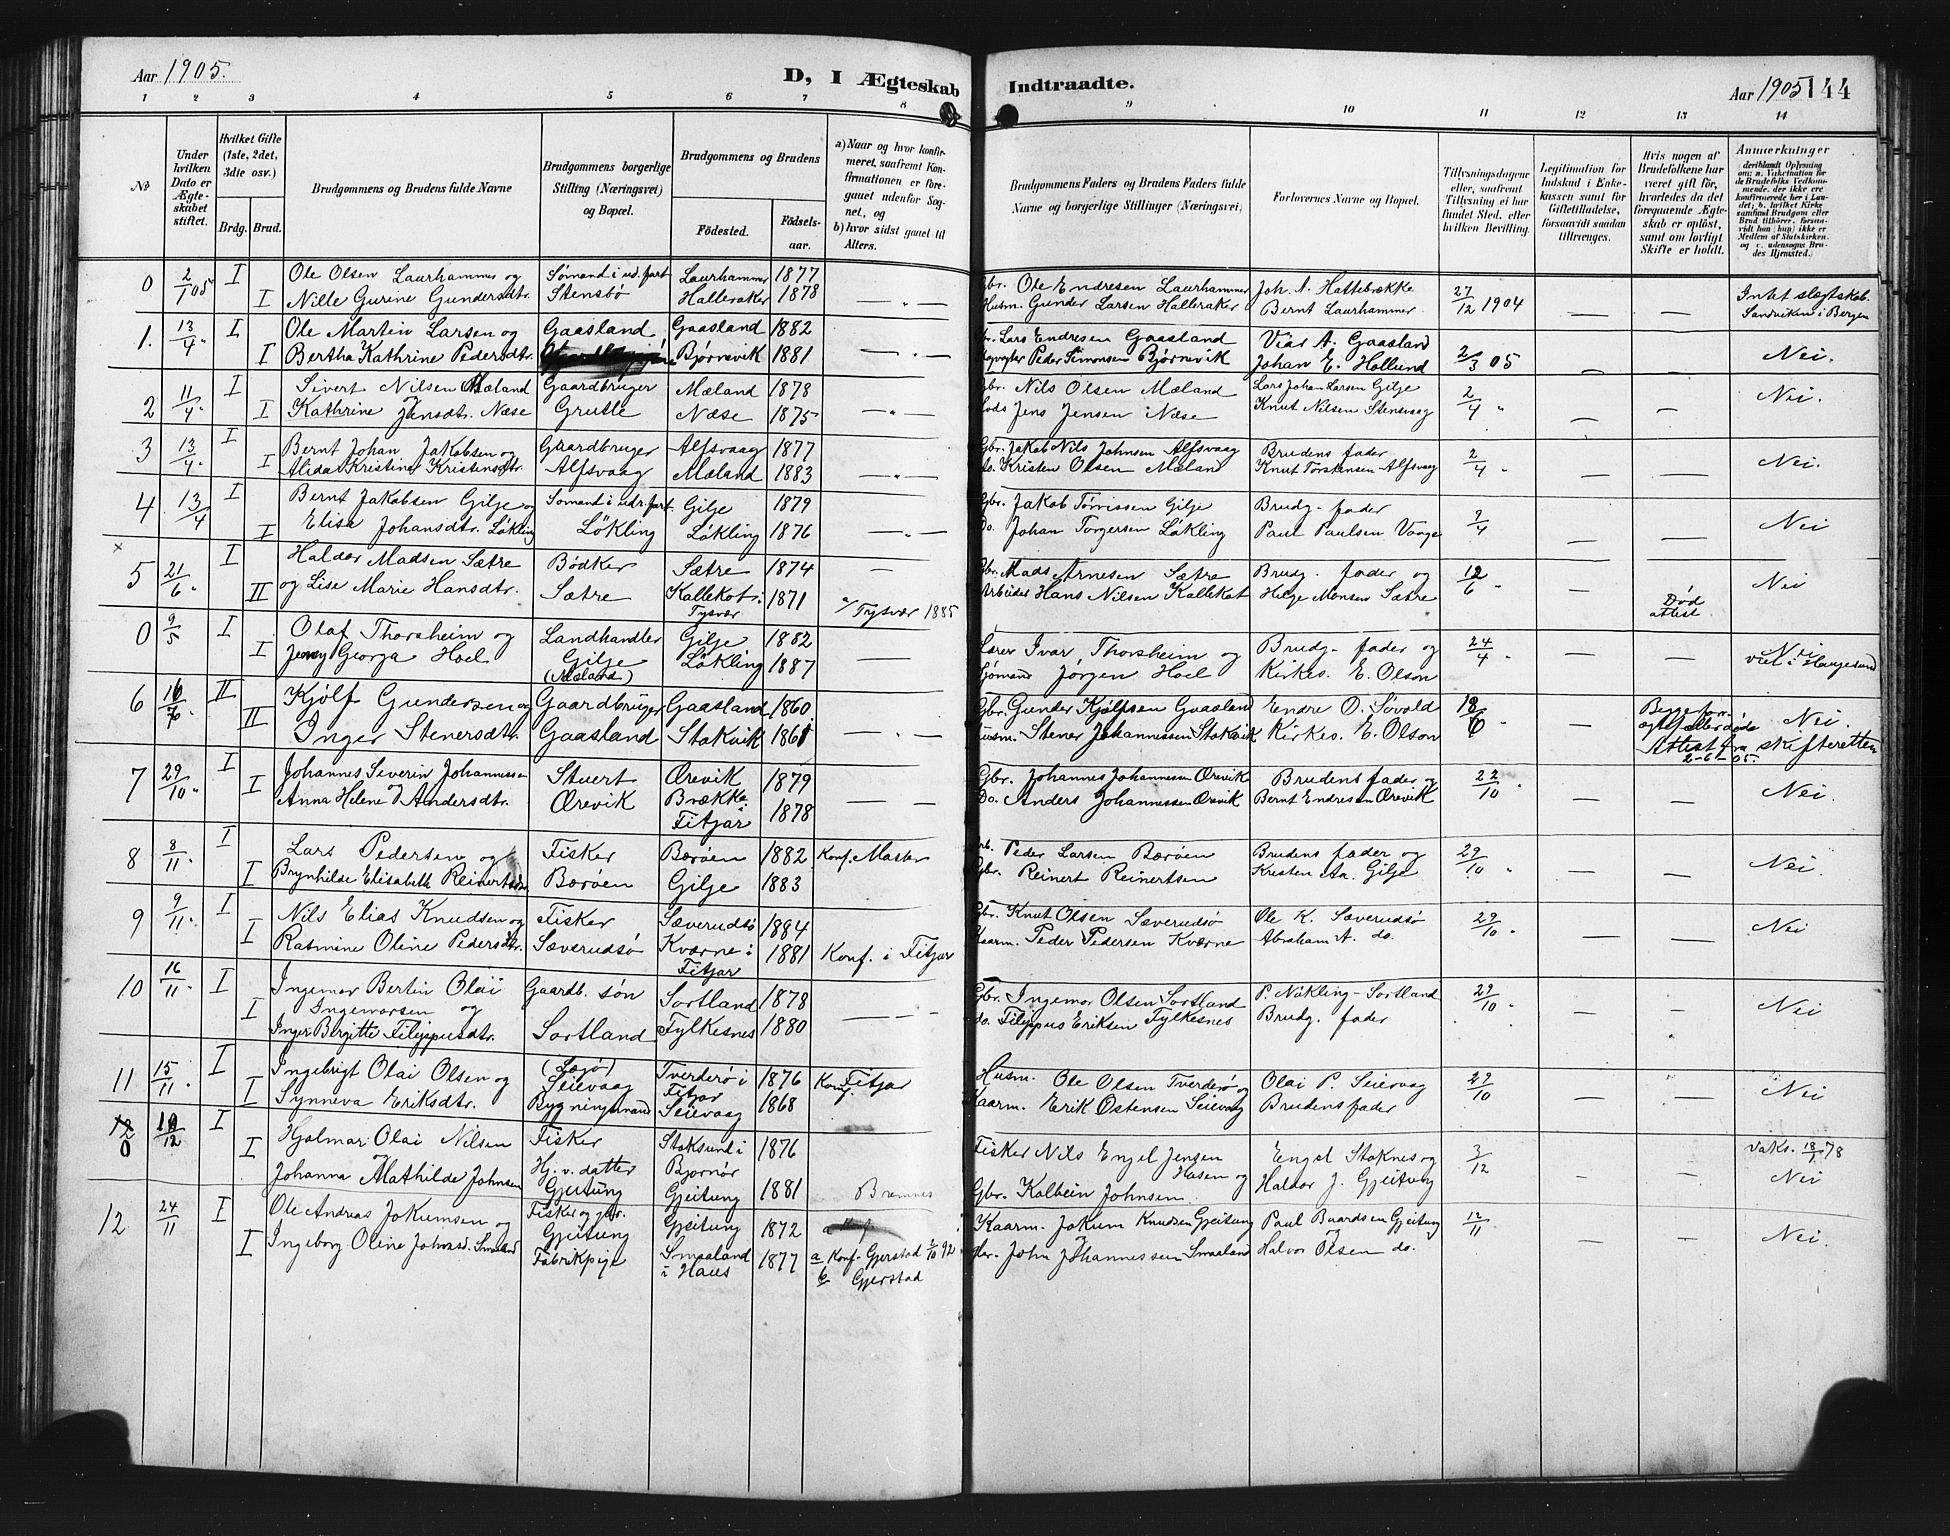 Aar 1905.
D, I Ægteskab Indtraadte.
Aar 1905 144
1 2 3 4 5 6 7 8 9 10 11 12 13 14
No
Under hvilken Dato er Ægteskabet stiftet.
Hvilket Gifte (1ste, 2det, 3die osv.)
Brdg. Brud.
Brudgommens og Brudens fulde Navne
Brudgommens borgerlige Stilling (Næringsvei) og Bopæl.
Brudgommens og Brudens
Fødested. Fødselsaar.
a) Naar og hvor konfirmeret, saafremt Konfirmationen er foregaaet udenfor Sognet, og
b) hvor sidst gaaet til Alters.
Brudgommens Faders og Brudens Faders fulde Navne og borgerlige Stillinger (Næringsvei)
Forlovernes Navne og Bopæl.
Tillysningsdagene eller, saafremt Tillysning ei har fundet Sted, efter hvilken Bevilling.
Legitimation for Indskud i Enkekassen samt for Giftetilladelse, forsaavidt saadan tiltrænges.
Hvis nogen af Brudefolkene har været gift før, hvorledes da det foregaaende Ægteskab er opløst, samt om lovligt Skifte er holdt.
Anmærkninger
0 2/1 05 I Ole Olsen Laurhammer og Sømand i ud. fart Laurhammer 1877 Gbr. Ole Endresen Laurhammer Joh. A. Hattebrække 27/12 1904 Intet slægtskab.
I Nille Gurine Gundersdtr. Stensbø Halleraker 1878 — " — Husm. Gunder Larsen Halleraker Bernt Laurhammer — — Sandviken i Bergen
1. 13/4 " I Ole Martin Larsen og Gaasland Gaasland 1882 Lars Endresen Gaasland Viar A. Gaasland
I Bertha Kathrine Pedersdtr. Bjørnevik 1881 — " — Peder Simonsen Bjørnevik Johan E. Hollund 2/3 05 — — Nei.
2 11/4 " I Sivert Nilsen Mæland Gaardbruger Mæland 1878 Gbr. Nils Olsen Mæland Lars Johan Larsen Gilje 2/4 " Nei.
I Kathrine Jensdtr. Næse Grutle Næse 1875 — " — Jens Jensen Næse Knut Nilsen Stensvaag — —
3 13/4 " I Bernt Johan Jakobsen og Gaardbruger Alfsvaag 1877 Gbr. Jakob Nils Johnsen Alfsvaag Brudens fader 2/4 " Nei.
I Alida Kristina Kristensdtr. Alfsvaag Mæland 1883 — " — do. Kristen Olsen Mæland Knut Torstensen Alfsvaag — —
4 13/4 I Bernt Jakobsen Gilje og Sømand i udr. fart Gilje 1879 Gbr. Jakob Tørrissen Gilje Brudg. fader 9/4 Nei
I Elisa Johansdtr. Løkling Løkling Løkling 1876 — " — Do. Johan Torgersen Løkling Paul Paulsen Vaage — —
5 21/6 " I Haldor Madsen Sætre Bødker Sætre 1874 — Gbr. Mads Arnesen Sætre Brudg. fader og 12/6 " Nei
II og Lise Marie Hansdtr. Sætre Kallekot i Tysvær 1871 a/ Tysvær 1885 Arbeider Hans Nilsen Kallekot Helge Monsen Sætre — Død attest
0 9/5 I Olaf Thorsheim og Landhandler Gilje 1882 Lærer Ivar Thorsheim og Brudg. fader og 24/4 Nei
I Jenny Georga Hoel Gilje (Mæland) Løkling 1887 — Sjømand Jørgen Hoel Kirkes. E. Olson — — viet i Haugesund
6 16/7 " II Kjølf Gundersen og Gaardbruger Gaasland 1860 Gbr. Gunder Kjølfsen Gaasland Endre O. Søvold 18/6 " Begge forr. Nei.
II Inger Stenersdtr. Gaasland Stokvik 1861 — " — Husm. Stener Johannessen Stokvik Kirkes. E. Olson — Attest fra skifteretten 2-6-05.
7 29/10 " I Johannes Severin Johannessen Stuert Ørevik 1879 Gbr. Johannes Johannesen Ørevik Brudens fader og 22/10 " Nei.
I Anna Helene Andersdtr. Ørevik Brække i Fitjar 1878 — Do. Anders Johannessen Ørevik Bernt Endresen Ørevik — —
8 8/11 " I Lars Pedersen og Fisker Bærøen 1882 Konf. Møster Peder Larsen Bærøen Brudens fader og 29/10 " Nei.
I Brynhilde Elisabeth Reinertsdtr Bærøen Gilje 1883 Gbr. Reinert Reinertsen Kristen Aa. Gilje — —
9 9/11 " I Nils Elias Knudsen og Fisker Sæverudsø 1884 Gbr. Knut Olsen Sæverudsø Ole K. Sæverudsø 29/10 " Nei
I Rasmine Oline Pedersdtr. Sæverudsø Kværne i Fitjar 1881 Konf. i Fitjar Kaarm. Peder Pedersen Kværne Abraham A. do. — —
10 16/11 " I Ingemor Bertin Olai Gaardb. søn Sortland 1878 Gbr. Ingemor Olsen Sortland P. Nøkling-Sortland 29/10 " Nei
I Ingemorsen og
Inger Birgitte Filippusdtr. Sortland Fylkesnes 1880 do. Filippus Eriksen Fylkesnes Brudg. fader — —
11 15/11 " I Ingebrigt Olai Olsen og Seievaag Tverderø i Fitjar 1876 Konf. Fitjar Husm. Ole Olsen Tverderø og Olai P. Seievaag 29/10 Nei
I Synneva Eriksdtr. Bygningsmand Seievaag 1868 Kaarm. Erik Ostensen Seievaag Brudens fader — —
0 10/12 I Hjalmar Olai Nilsen Fisker Stoksund i Bjørnør 1876 Fisker Nils Engel Jensen Hasen og Engel Stoknes og 3/12 Vaks. 18/1 78
I Johanna Mathilde Johnsen Hj. v. datter Gjeitung Gjeitung 1881 Bremnes Gbr. Kolbein Johnsen Haldor J. Gjeitung — — Nei
12 24/11 I Ole Andreas Jokumsen og Fisker og gbr. Gjeitung Gjeitung 1872 Kaarm. Jokum Knudsen Gjeitung Paul Baardsen Gjeitung 12/11 Nei.
I Ingeborg Oline Johnsd. Smaaland Fabrikpige Smaaland i Haus 1877 a Konf. Gjerstad 2/10 92 John Johannessen Smaaland Halvor Olsen do. — —
b Gjerstad